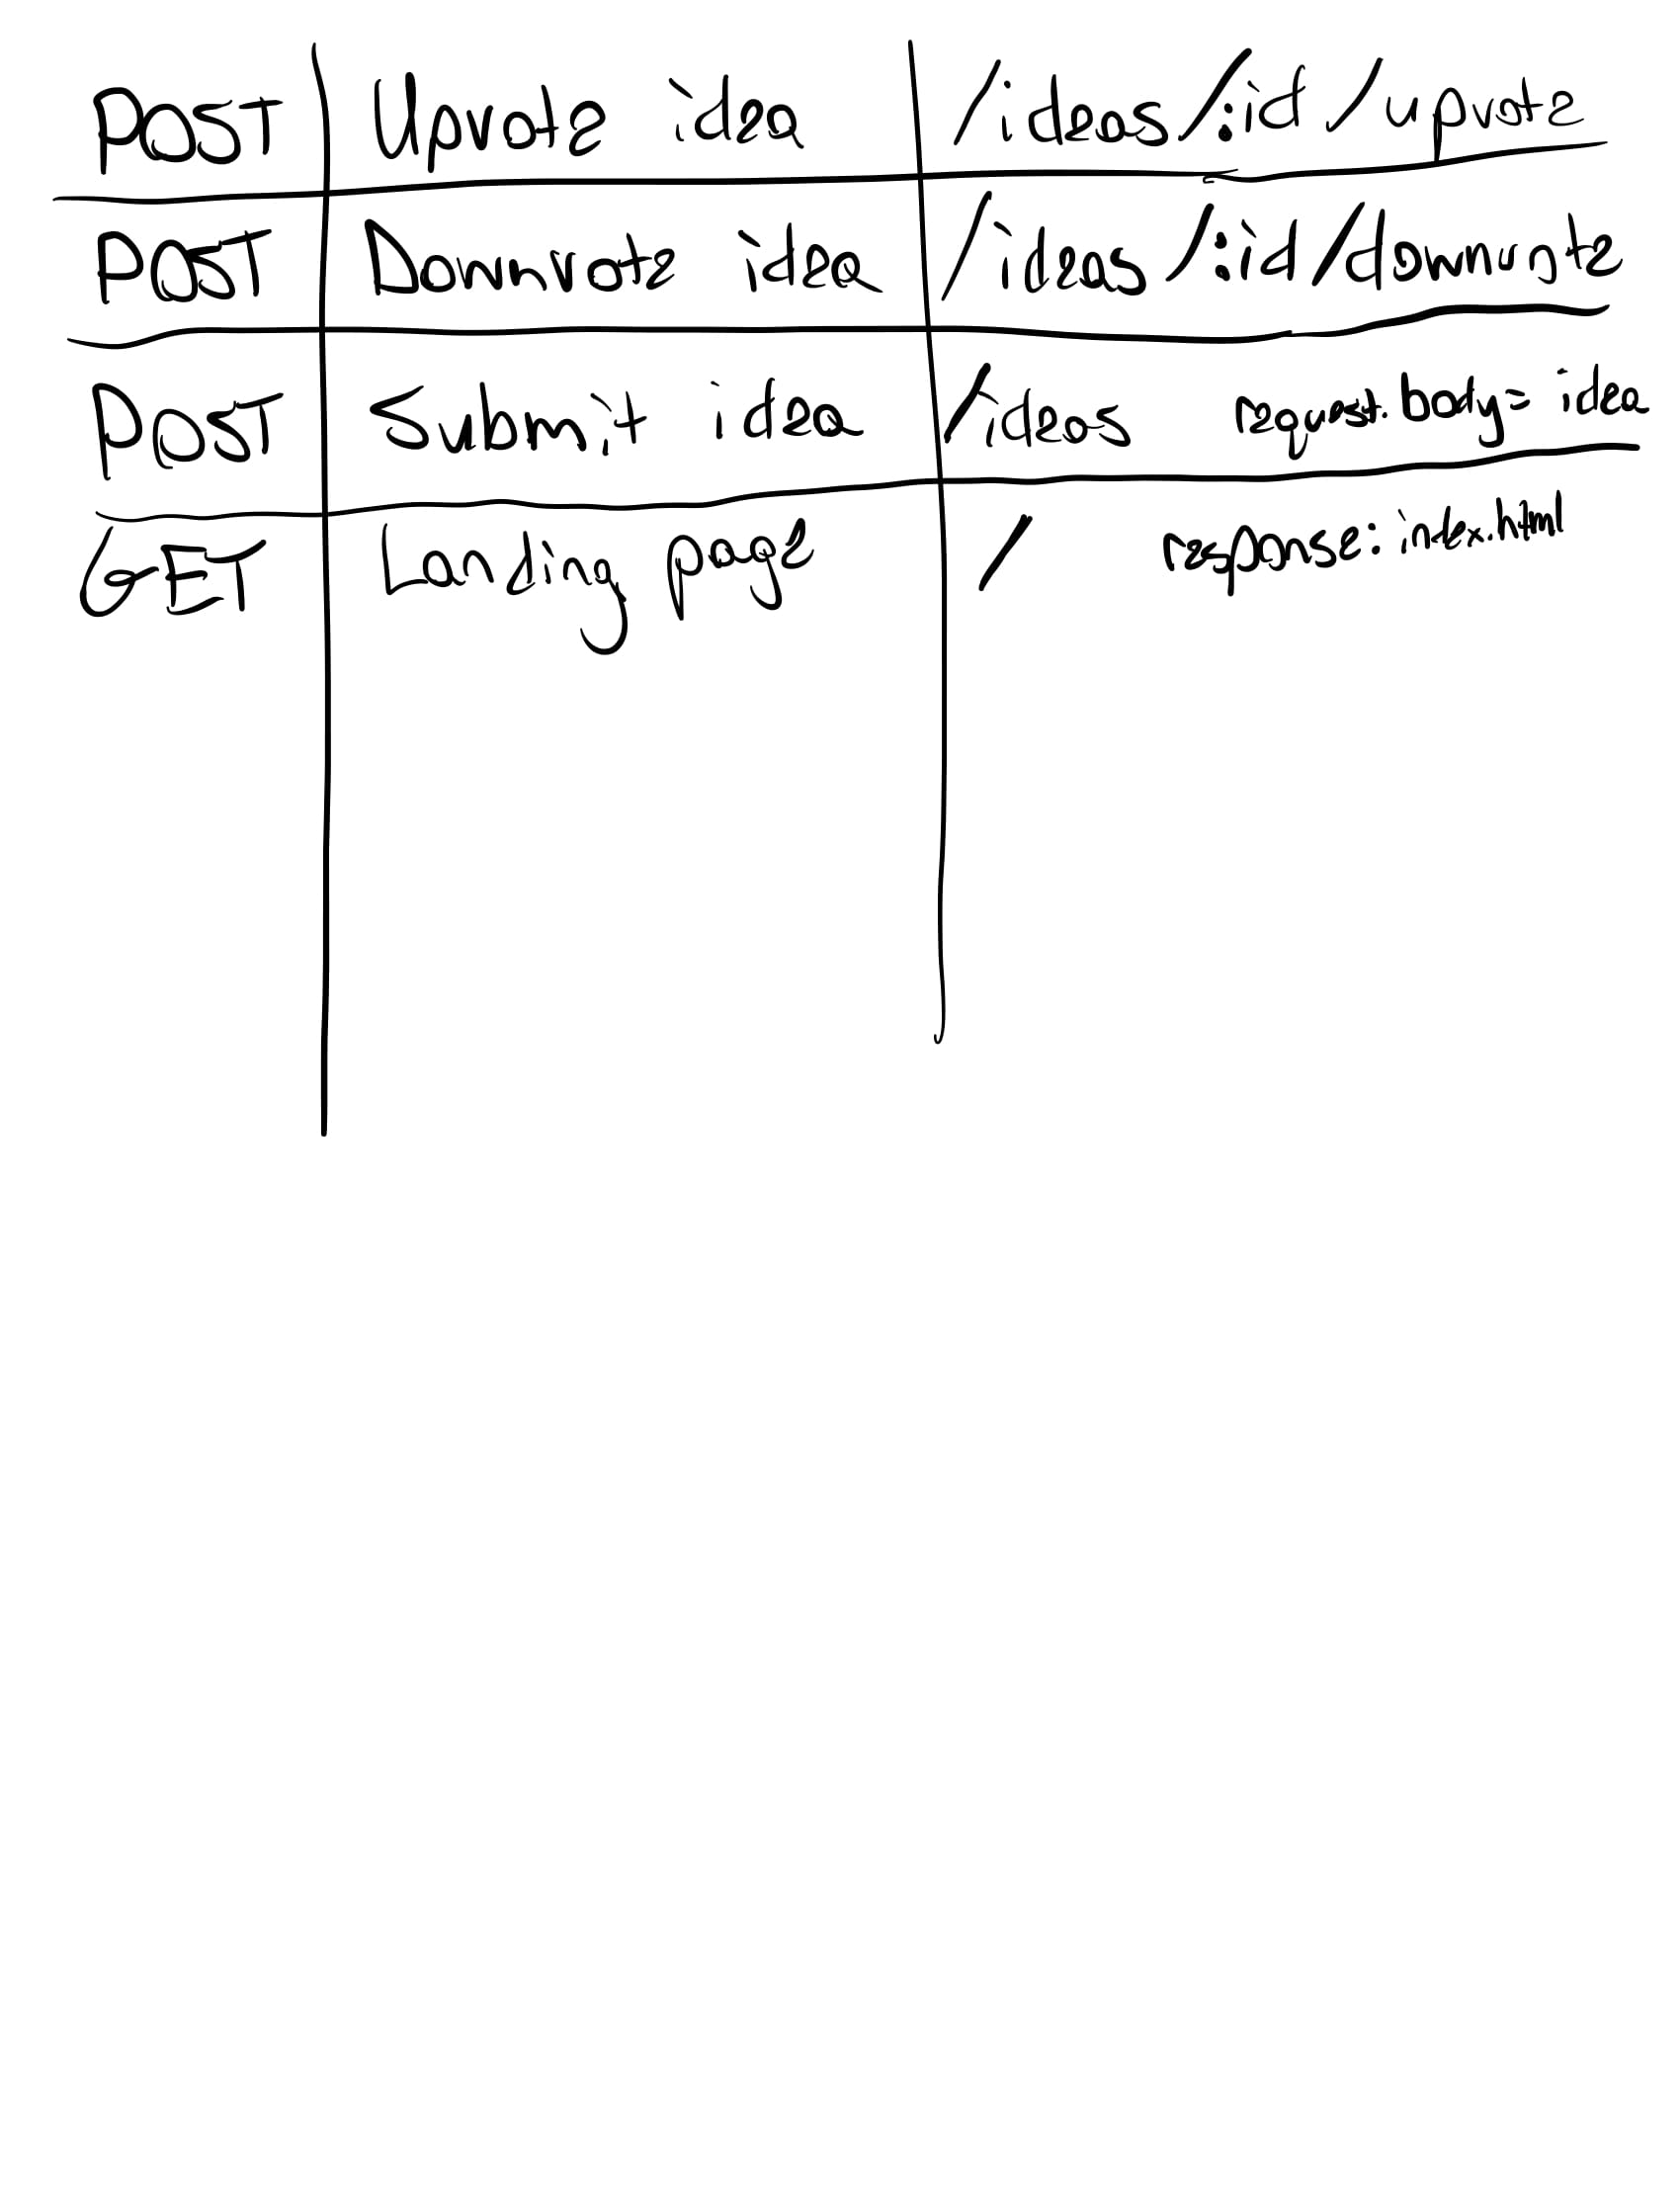 POST Upvote idea /ideas/:id/upvote
POST Downvote idea /ideas/:id/downvote
POST Submit idea /ideas request.body= idea
GET Landing page / response: index.html